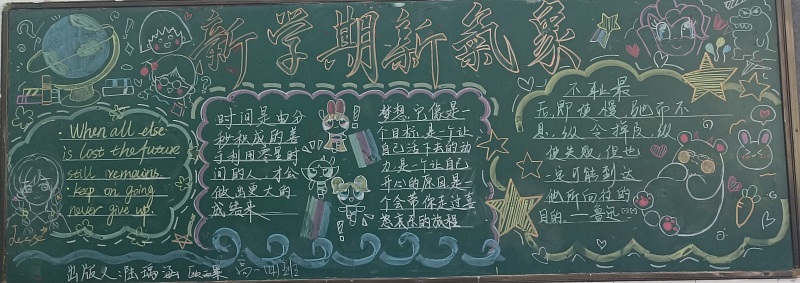 新学期新氣象
·When all else
is lost the future
still remains.
·keep on going
never give up.
时间是由分
秒积成的善
于利用零星时
间的人，才会
做出更大的
成绩来
梦想，只像是一
个目标，是一个让
自己活下去的动
力，是一个让自己
开心的原因，是一
个会带你走过喜
怒哀乐的旅程
不耻最
后，即使慢，驰而不
息，纵会落后，纵
使失败，但也
一定可能到达
他所向往的
目的——鲁迅
出版人：陆瑞涵 高一四班